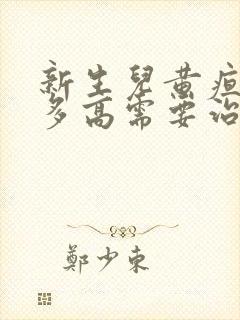 新生兒黃疸
多高需要治
鄭少東